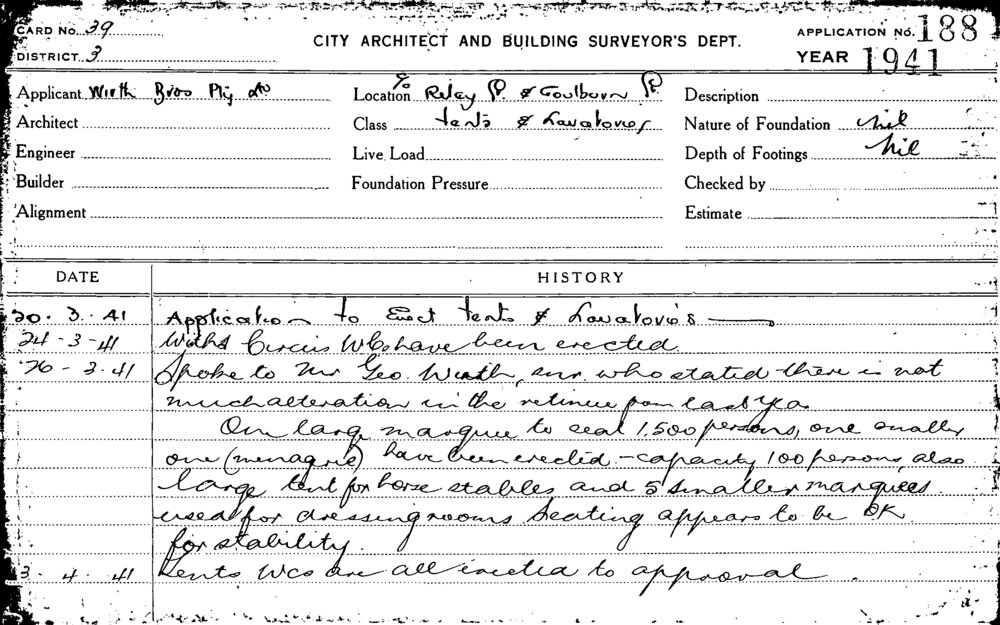 CARD No. 39
DISTRICT 3
CITY ARCHITECT AND BUILDING SURVEYOR'S DEPT.
APPLICATION No. 188
YEAR 1941
Applicant Wirth Bros Pty Ltd
Location Riley St & Goulburn St
Description
Architect
Class tents & Lavatories
Nature of Foundation Nil
Engineer
Live Load
Depth of Footings Nil
Builder
Foundation Pressure
Checked by
Alignment
Estimate
DATE HISTORY
20. 3. 41 Application to Erect tents & Lavatories
24-3-41 Wirths Circus WCs have been erected.
26-3.41 Spoke to Mr Geo. Wirth, snr who stated there is not
much alteration in the retinue from last Yea
One large marquee to seat 1,500 persons, one smaller
one (menagrie) have been erected - capacity 100 persons, also
large tent for horse stables and 5 smaller marquees
used for dressing rooms Seating appears to be OK
for stability.
3. 4. 41 Tents Wcs are all erected to approval.